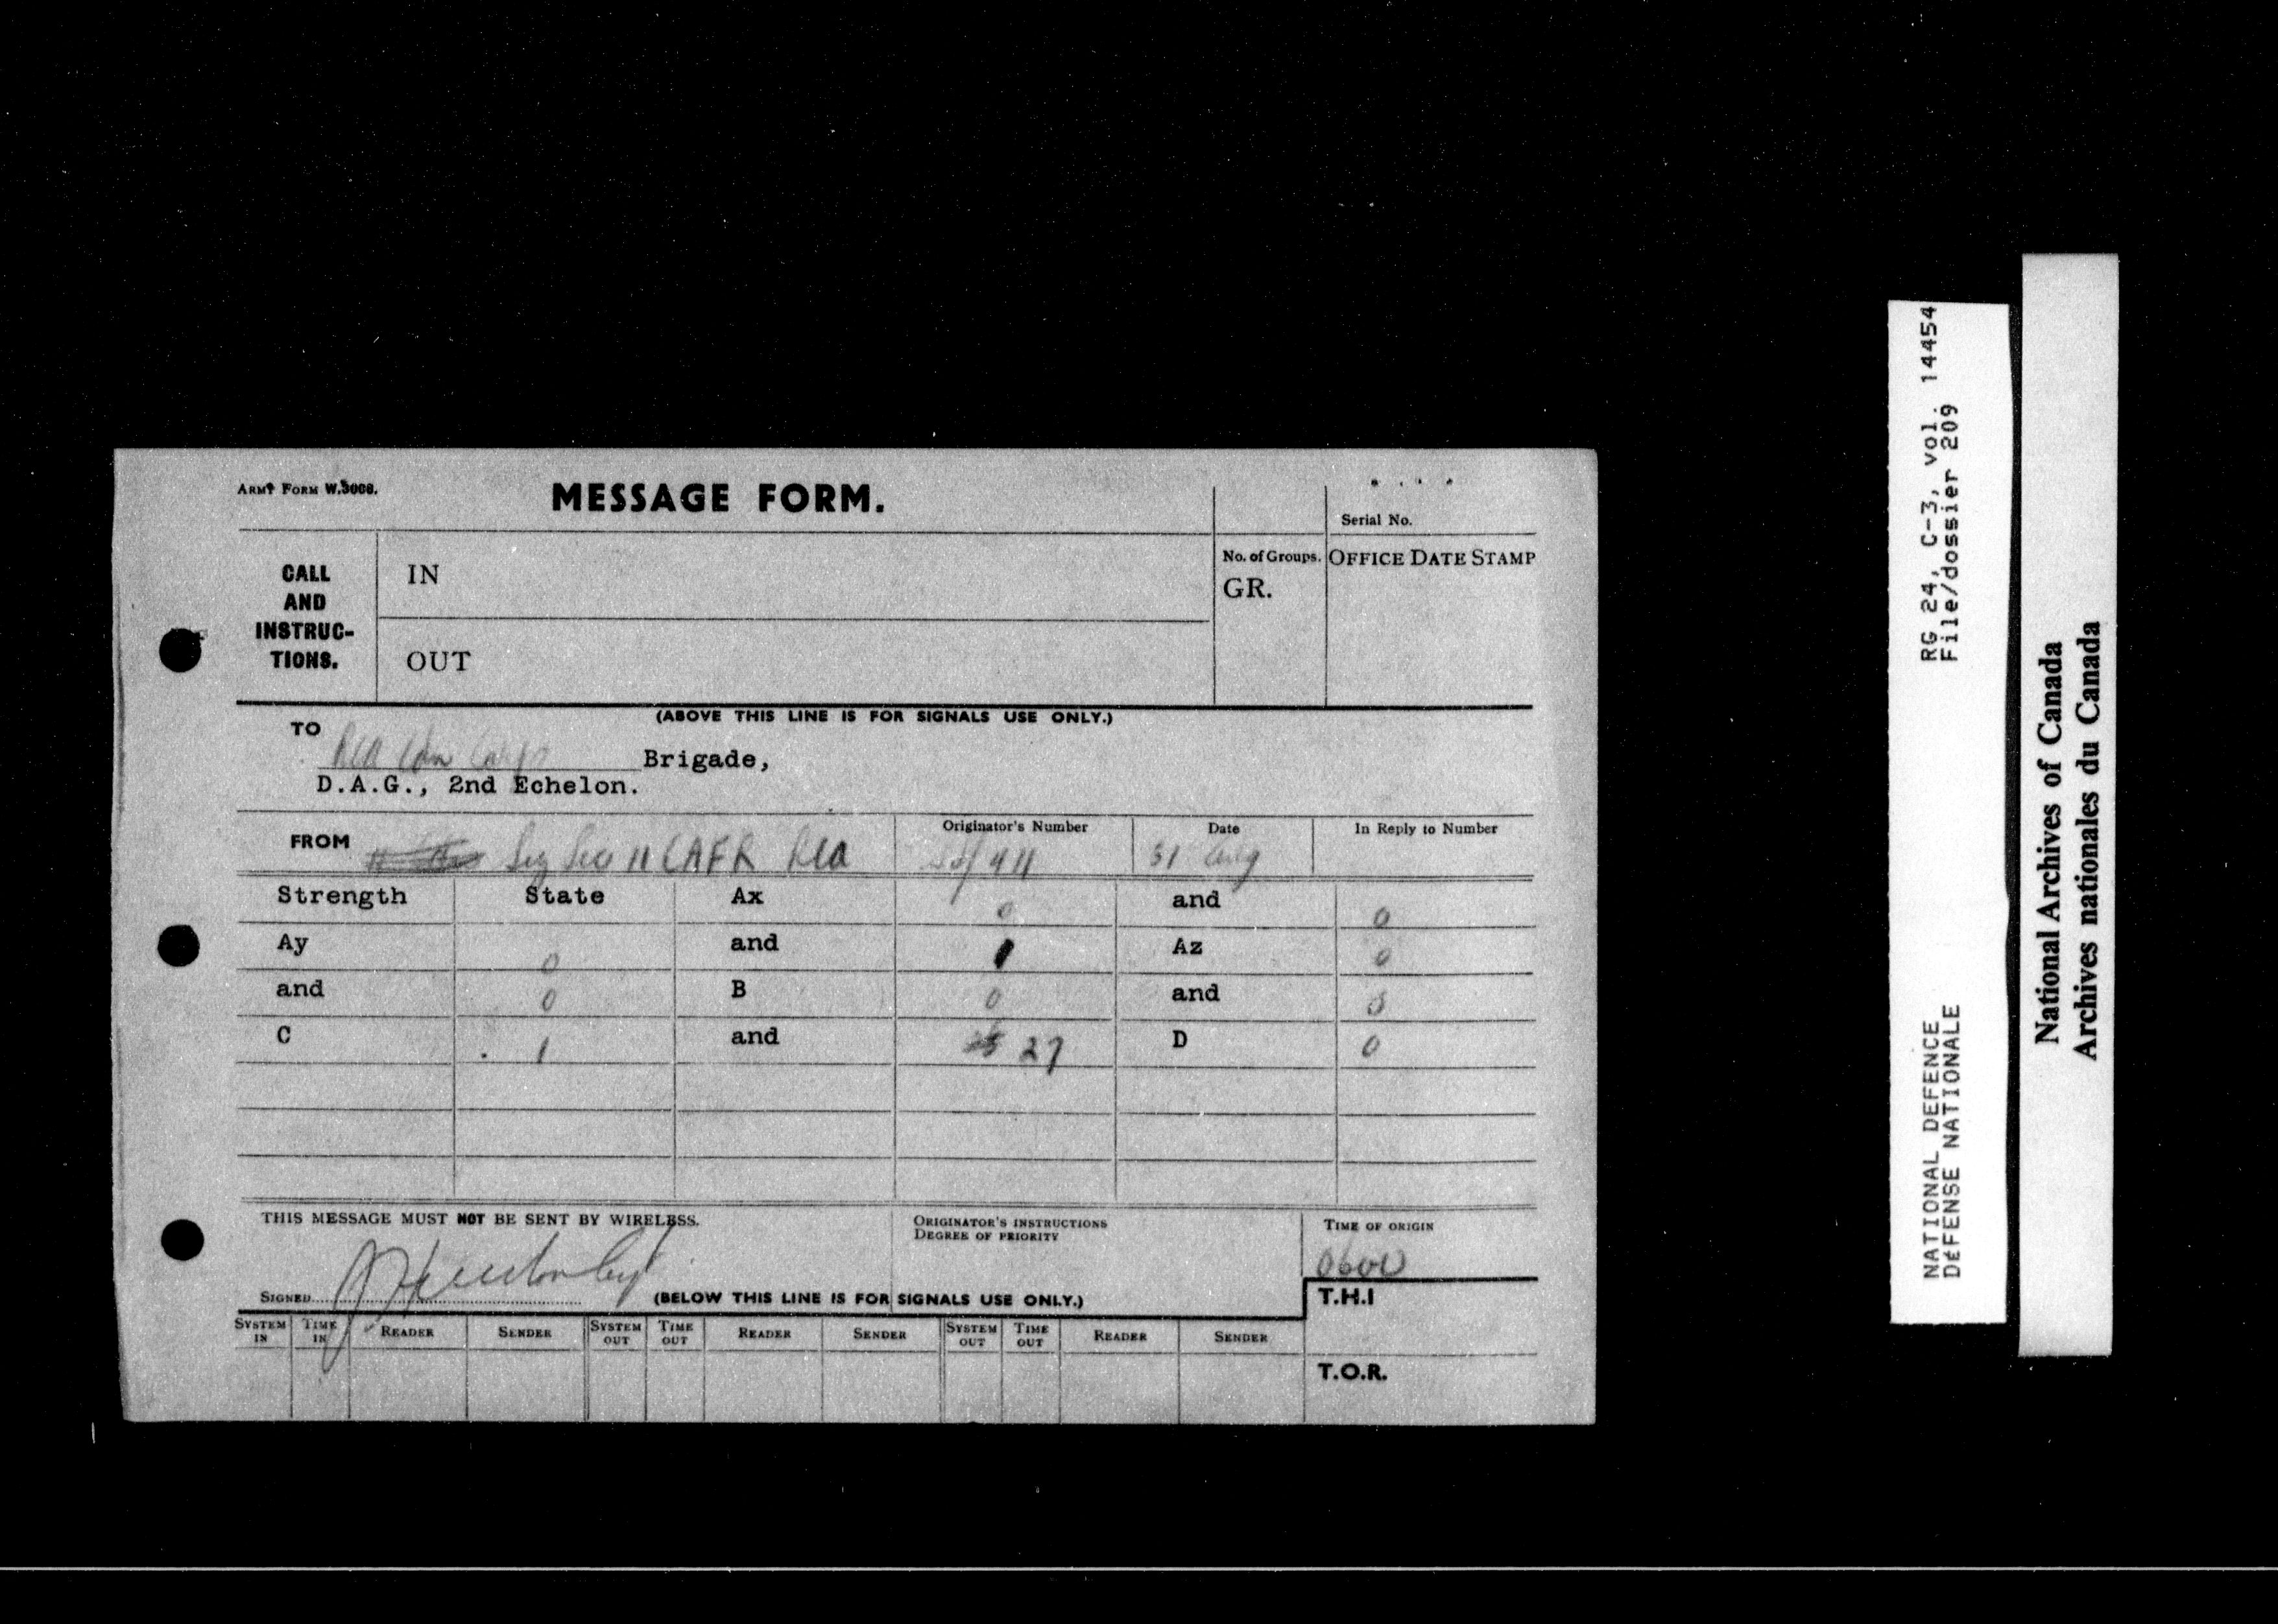 ARMY FORM W.3008.
MESSAGE FORM.
Serial No.
CALL AND INSTRUC- TIONS.
IN
No. of Groups.
GR.
OFFICE DATE STAMP
OUT
(ABOVE THIS LINE IS FOR SIGNALS USE ONLY.)
TO
RCA Cdn Corps Brigade,
D.A.G., 2nd Echelon.
FROM Sig Sec 11 CAFR RCA
Originator's Number
411
Date
31 Aug
In Reply to Number
Strength State Ax 0 and 0
Ay 0 and 1 Az 0
and 0 B 0 and 0
C 1 and 27 D 0
THIS MESSAGE MUST NOT BE SENT BY WIRELESS.
ORIGINATOR'S INSTRUCTIONS
DEGREE OF PRIORITY
TIME OF ORIGIN
0600
SIGNED
(BELOW THIS LINE IS FOR SIGNALS USE ONLY.)
T.H.I
SYSTEM IN TIME IN READER SENDER SYSTEM OUT TIME OUT READER SENDER SYSTEM OUT TIME OUT READER SENDER
T.O.R.
RG 24, C-3, vol. 14454
File/dossier 209
NATIONAL DEFENCE
DéFENSE NATIONALE
National Archives of Canada
Archives nationales du Canada